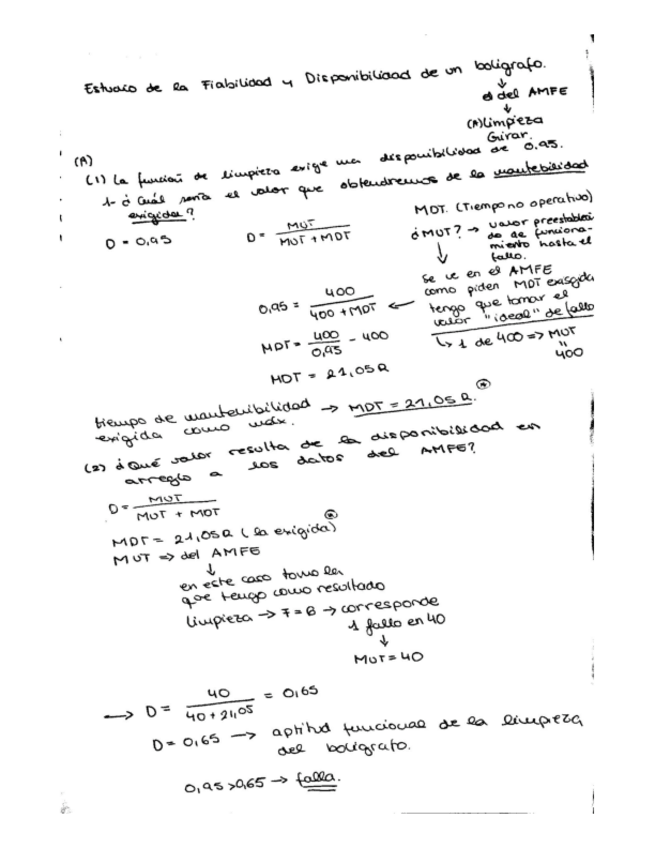 Estudio de la Fiabilidad y Disponibilidad de un bolígrafo.
↓
del AMFE
↓
(A) Limpieza
Girar.
(A)
(1) La función de limpieza exige una disponibilidad de 0.95.
1- ¿Cuál sería el valor que obtendremos de la mantebilidad
exigida?
MDT. (Tiempo no operativo)
D = 0,95
D = MUT / (MUT + MDT)
¿MUT? → valor preestableci
do de funciona-
miento hasta el
fallo.
↓
Se ve en el AMFE
como piden MDT exigida
tengo que tomar el
valor "ideal" de fallo
↳ 1 de 400 => MUT
"
400
0,95 = 400 / (400 + MDT) ←
MDT = 400 / 0,95 - 400
MDT = 21,05h
tiempo de mantenibilidad → MDT = 21,05h. (*)
exigida como máx.
(2) ¿Qué valor resulta de la disponibilidad en
arreglo a los datos del AMFE?
D = MUT / (MUT + MDT)
MDT = 21,05h (la exigida) (*)
MUT => del AMFE
↓
en este caso tomo la
que tengo como resultado
Limpieza → F = 6 → corresponde
1 fallo en 40
↓
MUT = 40
→ D = 40 / (40 + 21,05) = 0,65
D = 0,65 → aptitud funcional de la limpieza
del bolígrafo.
0,95 > 0,65 → falla.